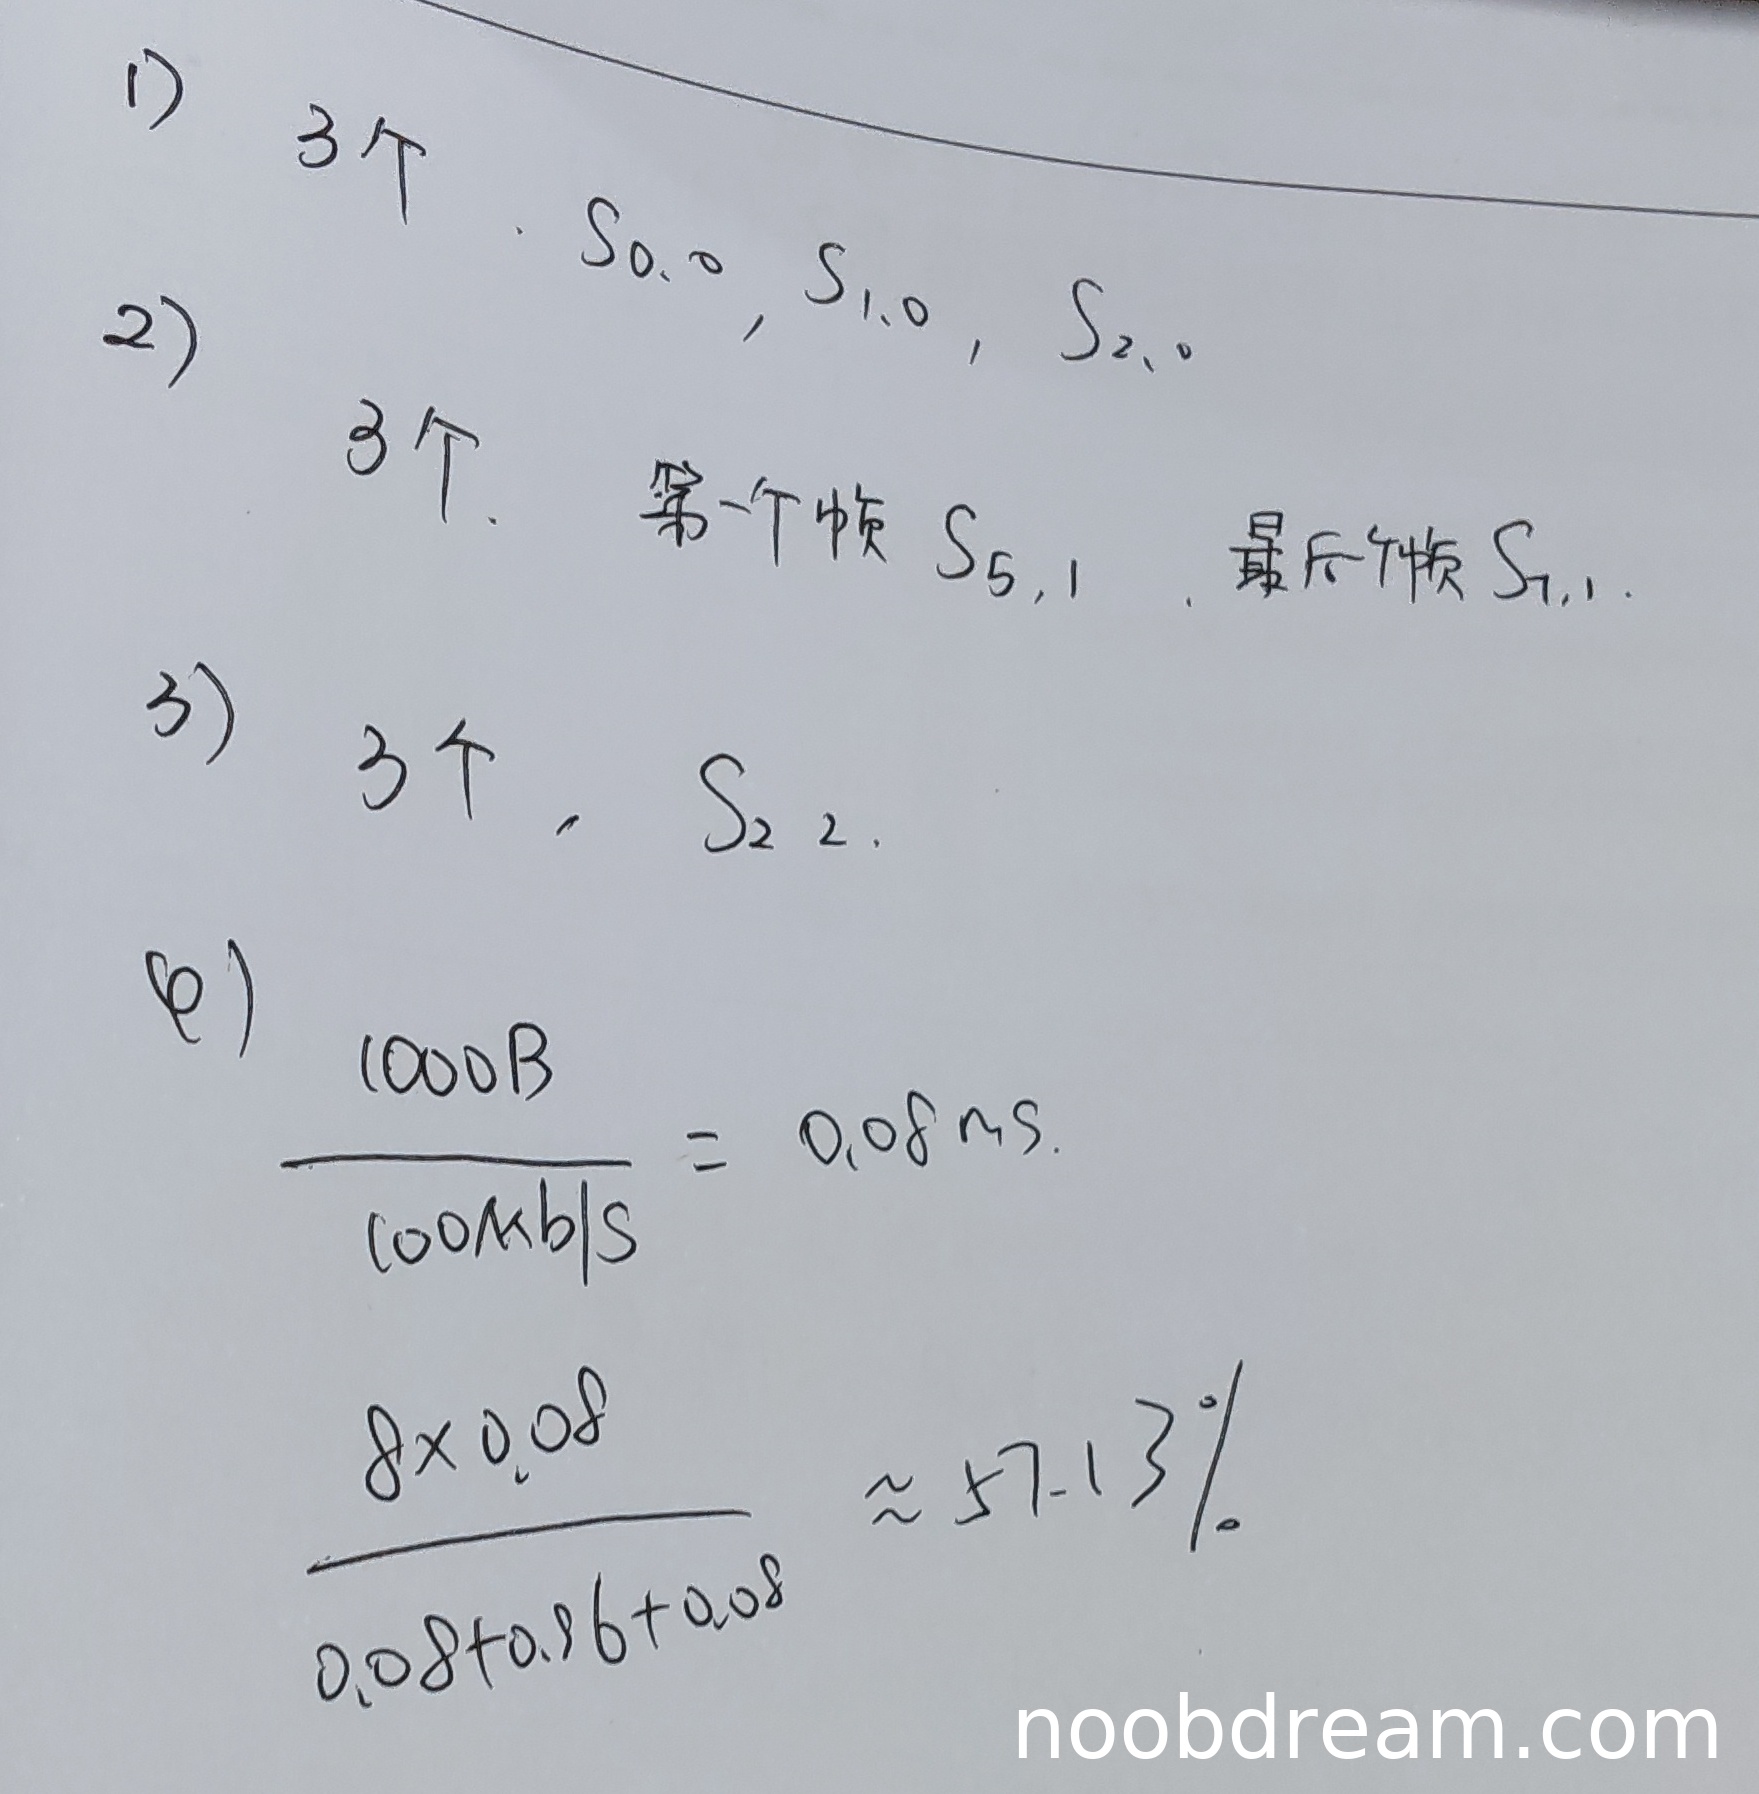 1) 3个. S0.0, S1.0, S2.0
2) 3个. 第一个帧 S5,1. 最后个帧 S7,1.
3) 3个, S2 2.
4)
1000B
100Mb/s
= 0.08ms.
8×0.08
0.08+0.96+0.08
≈57.13%
noobdream.com